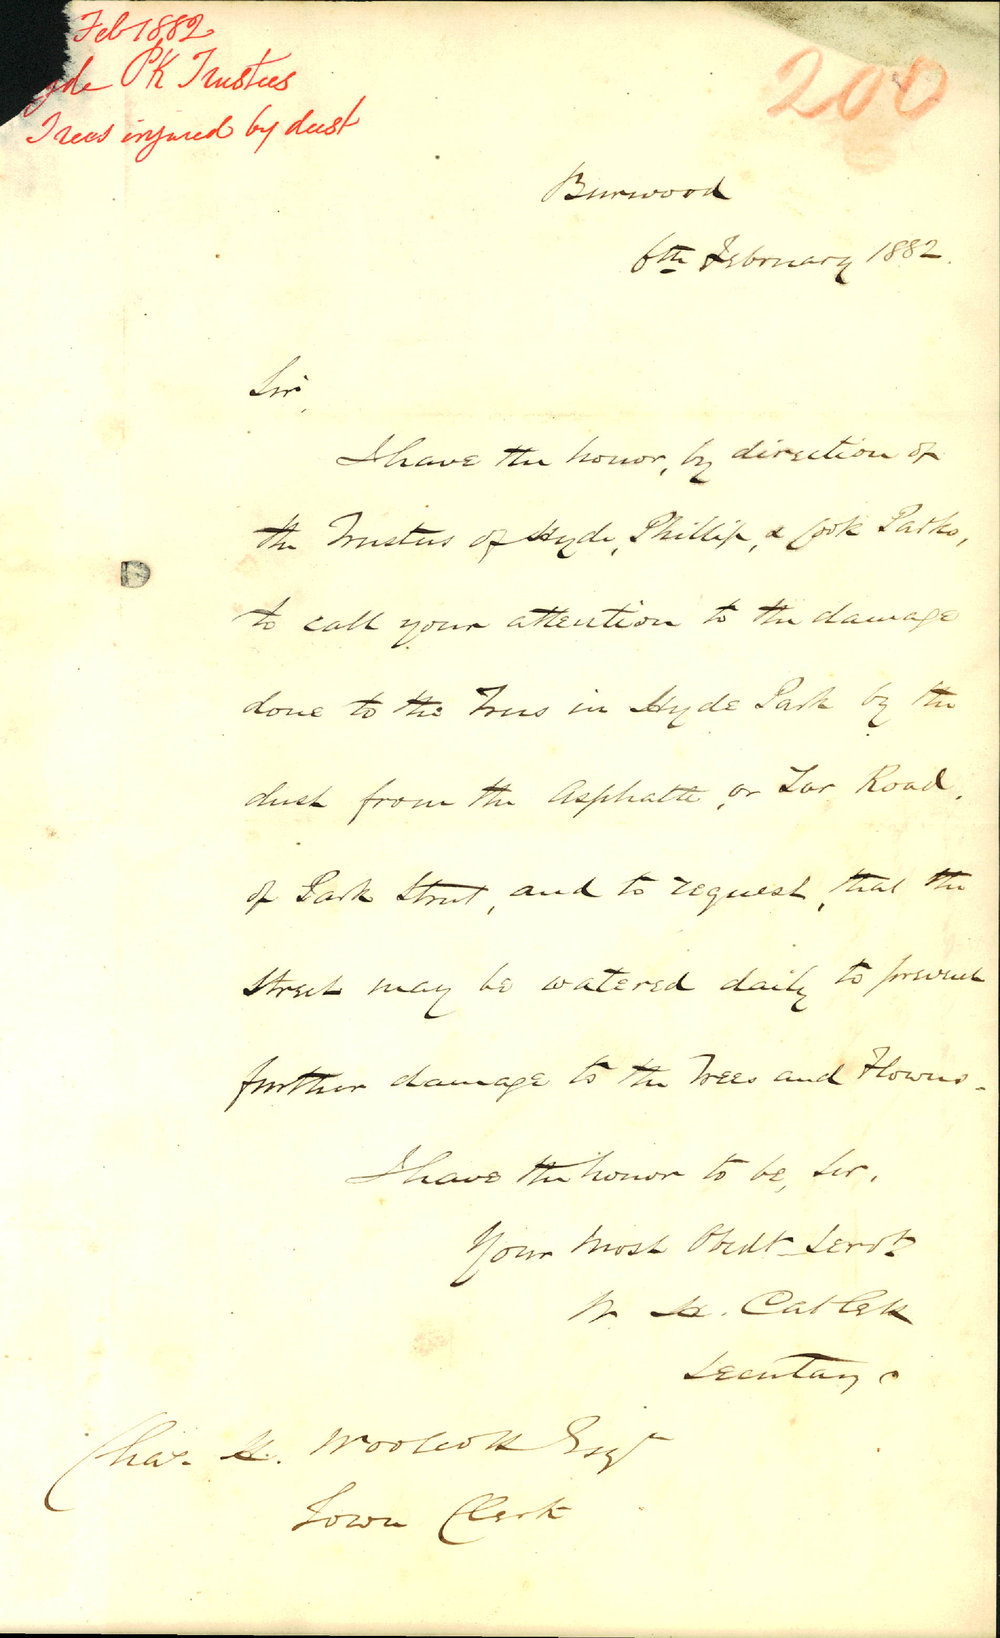 Feb 1882
Hyde PK Trustees
Trees injured by dust
200
Burwood
6th February 1882.
Sir,
I have the honor, by direction of
the Trustees of Hyde, Phillip, & Cook Parks,
to call your attention to the damage
done to the Trees in Hyde Park by the
dust from the Asphalte, or Tar Road,
of Park Street, and to request, that the
Street may be watered daily to prevent
further damage to the Trees and Flowers.
I have the honor to be, Sir,
Your Most Obedt Servt
W H. Catlett
Secretary
Chas. H. Woolcott Esqr
Town Clerk